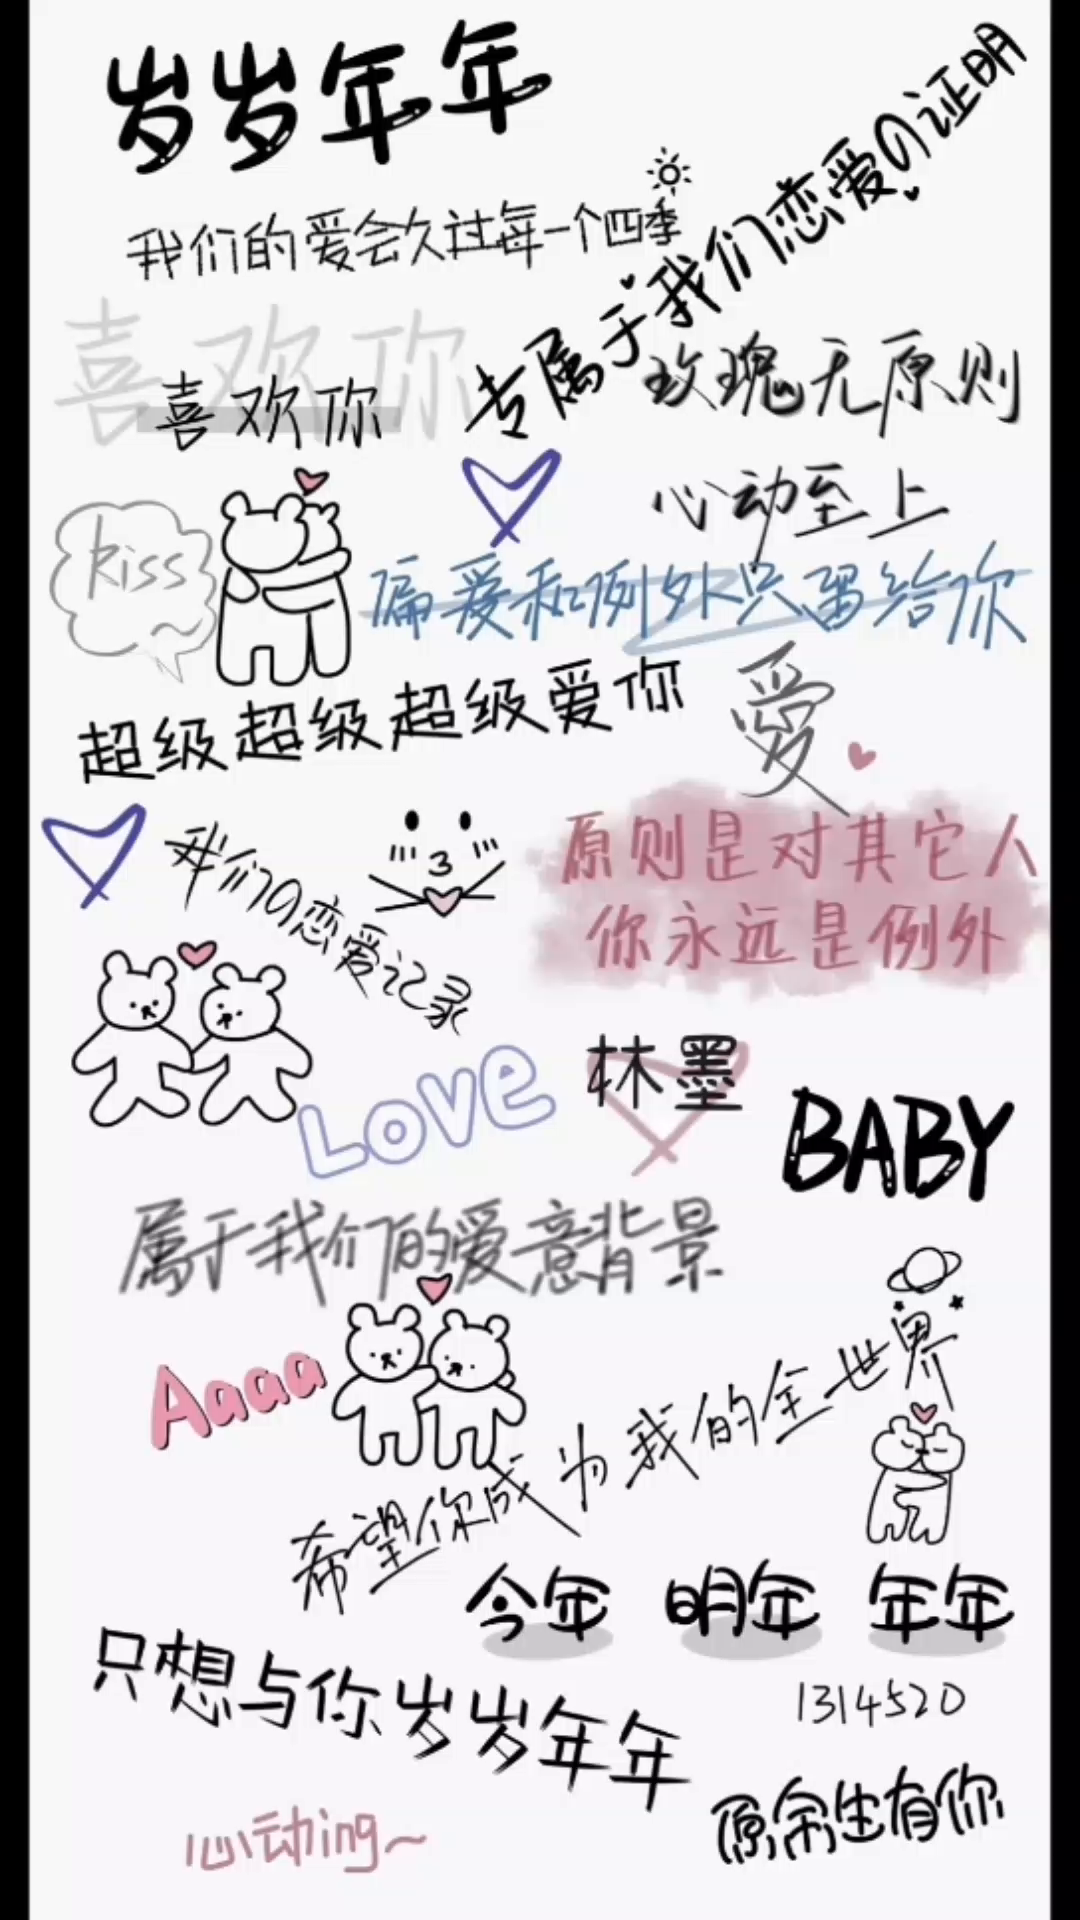 岁岁年年
专属于我们恋爱の证明
我们的爱会久过每一个四季
喜欢你
喜欢你
玫瑰无原则
心动至上
kiss
偏爱和例外只留给你
超级超级超级爱你
愛
原则是对其它人
你永远是例外
我们の恋爱记录
林墨
LOVE
BABY
属于我们的爱意背景
Aaaa
希望你成为我的全世界
今年 明年 年年
只想与你岁岁年年
1314520
原余生有你
心动ing~